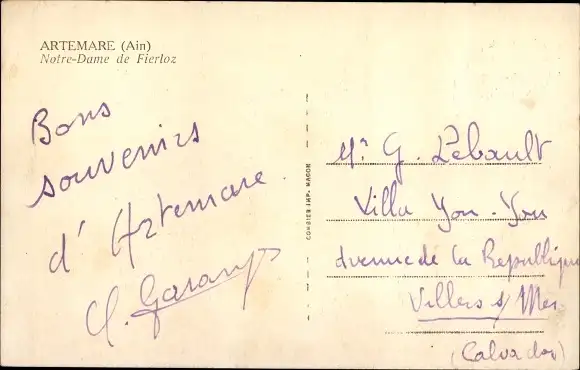 ARTEMARE (Ain)
Notre-Dame de Fierloz
Bons
souvenirs
d'Artemare
COMBIER IMP. MACON
Mr G. Lebault
Villa You-You
Avenue de la République
Villers s/ Mer
(Calvados)